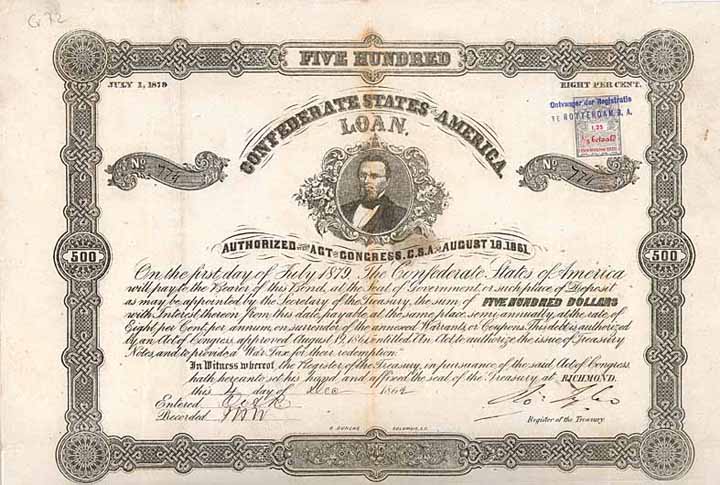 Cr 72
FIVE HUNDRED
JULY 1, 1879
EIGHT PER CENT.
Ontvanger der Registratie
TE ROTTERDAM B. A.
1,25
CONFEDERATE STATES OF AMERICA.
LOAN.
No 774
No 774
AUTHORIZED BY THE ACT OF CONGRESS, C.S.A. OF AUGUST 19, 1861.
500
500
On the first day of July 1879 The Confederate States of America
will pay to the Bearer of this Bond, at the Seat of Government, or such place of Deposit
as may be appointed by the Secretary of the Treasury, the sum of FIVE HUNDRED DOLLARS
with Interest thereon from this date, payable at the same place semi-annually, at the rate of
Eight per Cent, per annum, on surrender of the annexed Warrants or Coupons. This debt is authorized
by an Act of Congress, approved August 19, 1861, entitled "An Act to authorize the issue of Treasury
Notes, and to provide a War Tax for their redemption."
In Witness whereof, the Register of the Treasury, in pursuance of the said Act of Congress,
hath hereunto set his hand and affixed the seal of the Treasury, at RICHMOND,
this day of Dec 1862
Entered
Recorded
Ro: Tyler
Register of the Treasury
B. DUNCAN COLUMBIA, S.C.